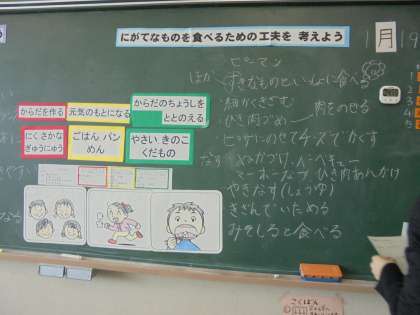 にがてなものを食べるための工夫を 考えよう
1月19
ピーマン
ほか すきなものといっしょに食べる
細かくきざむ
肉をのせる
ひき肉づめ
ピザにのせてチーズでかくす
からだを作る
元気のもとになる
からだのちょうしをととのえる
にく さかな ぎゅうにゅう
ごはん パン めん
やさい きのこ くだもの
なす
マーボーなす ひき肉あんかけ
やきなす(しょうゆ)
きざんでいためる
みそしると食べる
こくばん